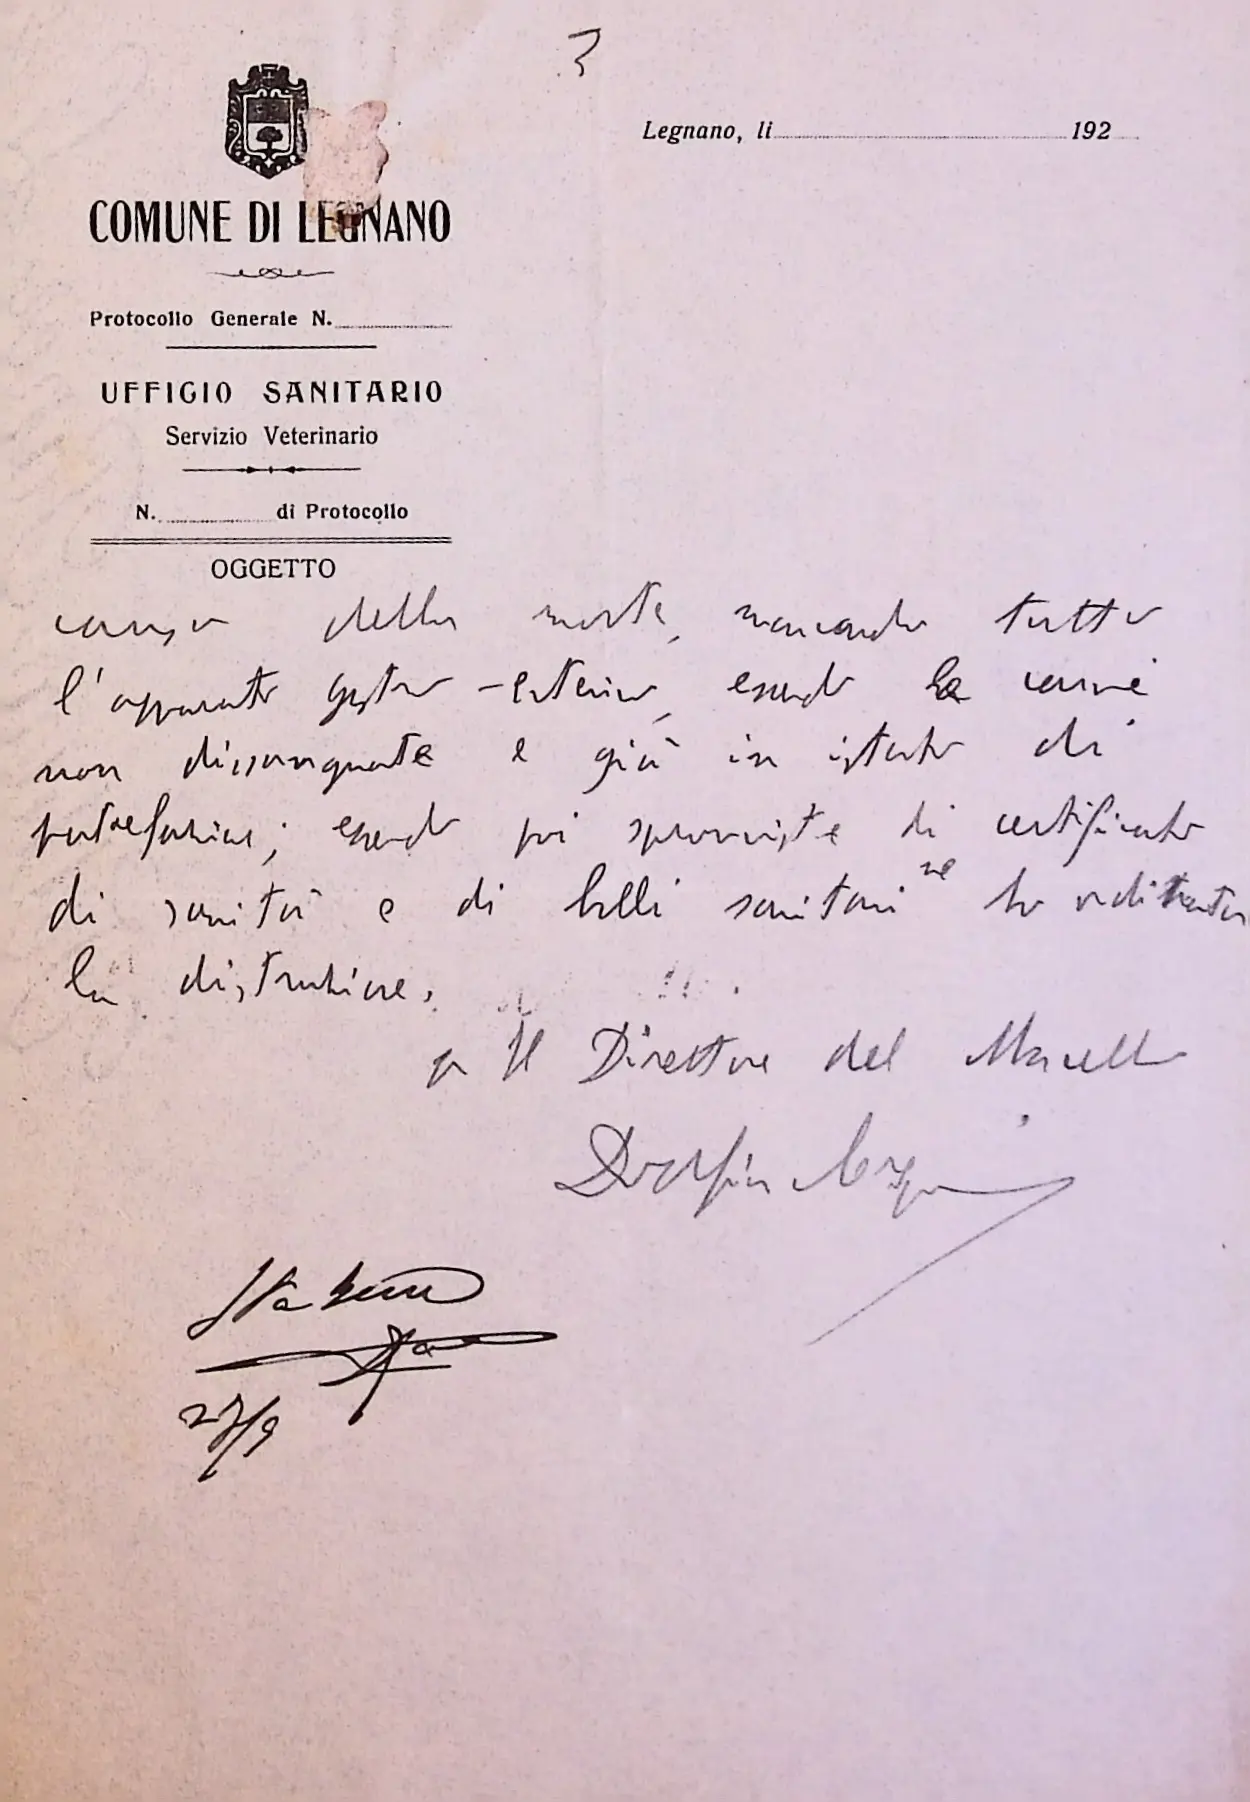 3
Legnano, li 192
COMUNE DI LEGNANO
Protocollo Generale N.
UFFICIO SANITARIO
Servizio Veterinario
N. di Protocollo
OGGETTO
causa della morte, mancando tutto
l'apparato gastro-enterico, essendo le carni
non dissanguate e già in istato di
putrefazione; essendo poi sprovviste di certificato
di sanità e di bolli sanitari ne ho ordinata
la distruzione.
p Il Direttore del Macello
27/9